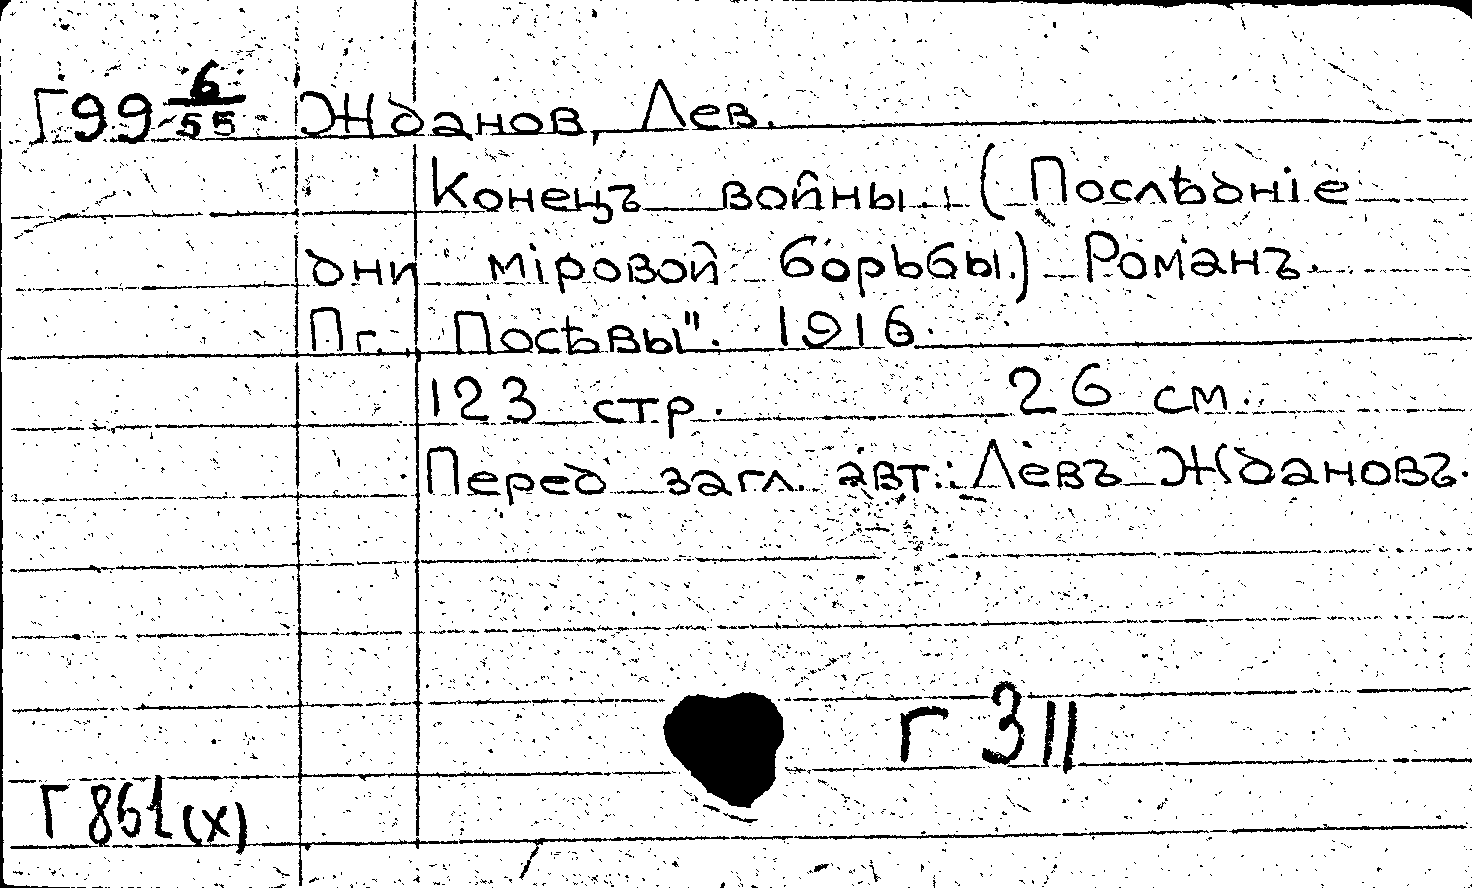 Г99 6/55 Жданов, Лев.
Конецъ войны. (Послѣднiе
дни мiровой борьбы.) Романъ.
Пг. Посѣвы". 1916.
123 стр. 26 см.
Перед загл. авт.: Левъ Ждановъ.
Г 311
Г 861(х)